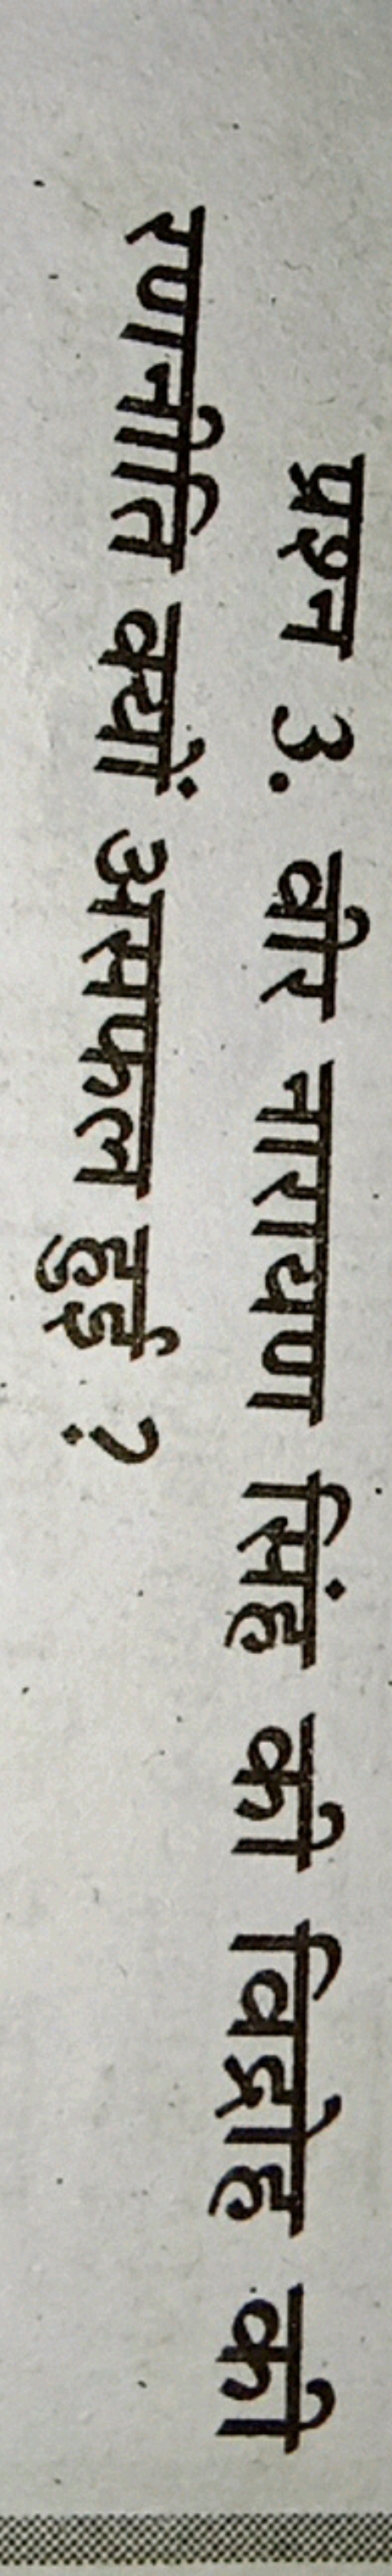 प्रश्न 3. वीर नारायण सिंह की विद्रोह की
रणनीति क्यों असफल हुई ?